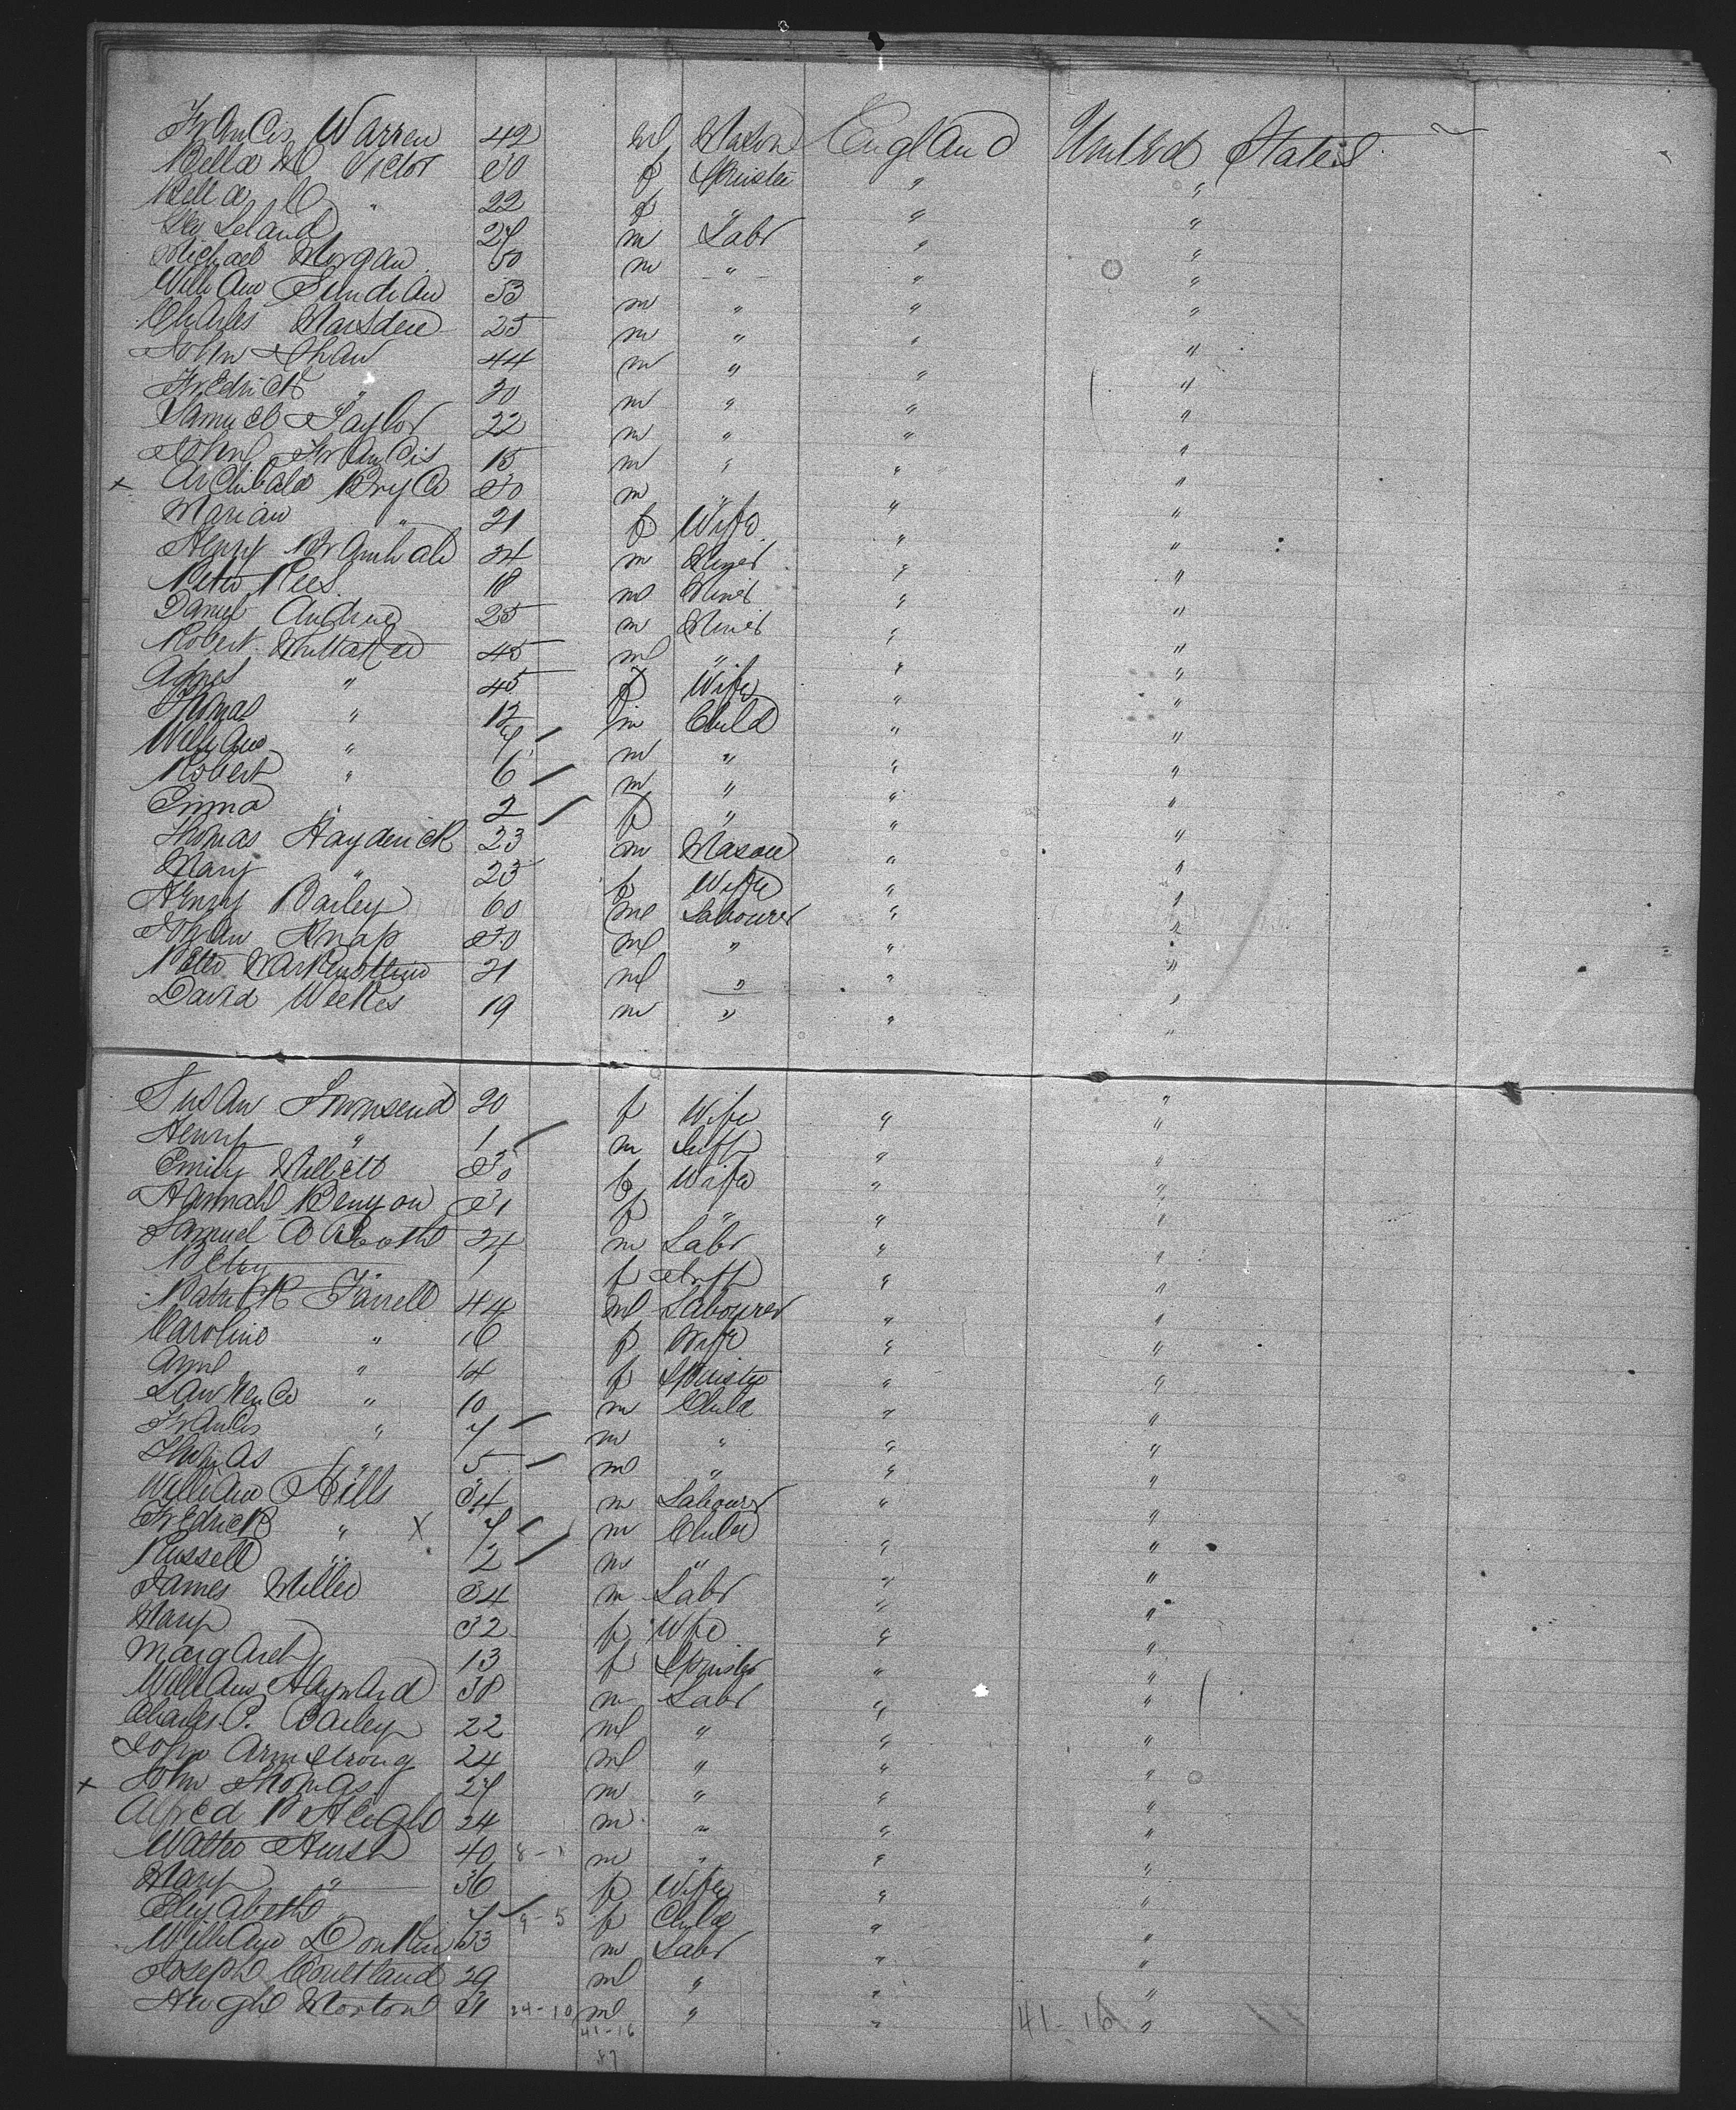 Francis Warren 42 m Mason England United States
Bella M Victor 30 f Spinster " "
Bella C " 22 f " " "
Geo Leland 27 m Labr " "
Michael Morgan 50 m " " "
William 53 m " " "
Charles Marsden 25 m " " "
John Shaw 44 m " " "
Fredrick " 20 m " " "
Samuel Taylor 22 m " " "
John Francis 15 m " " "
x Archibald Bryce 30 m " " "
Marian " 21 f Wife " "
Henry 24 m " "
Peter Rees 18 m Miner " "
Daniel Andrew 25 m Miner " "
Robert Whittaker 45 m " " "
Agnes " 45 f Wife " "
Thomas " 12 m Child " "
William " 7 m " " "
Robert " 6 m " " "
Emma 2 f " " "
Thomas Hayderick 23 m Mason " "
Mary " 23 f Wife " "
Henry Bailey 60 m Labourer " "
Johan Knap 30 m " " "
Peter 21 m " " "
David Weekes 19 m " " "
Susan Townsend 20 f Wife " "
Henry " 1 m Inft " "
Emily Willett 30 f Wife " "
Hannah Benyon 31 f " " "
Samuel O Booth 24 m Labr " "
Betsy 1 f Inft " "
Patrick Farrell 44 m Labourer " "
Caroline " 16 f Wife " "
Ann " 14 f Spinster " "
Lawrence " 10 m Child " "
Francis " 7 m " " "
Thomas " 5 m " " "
William Hills 34 m Labourer " "
Fredrick " X 7 m Child " "
Russell " 2 m " " "
James Miller 34 m Labr " "
Mary 32 f Wife " "
Margaret 13 f Spinster " "
William Hayward 38 m Labr " "
Charles P. Bailey 22 m " " "
John Armstrong 24 m " " "
x John Thomas 27 m " " "
Alfred 24 m " " "
Walter Hursh 40 8-1 m " " "
Mary " 36 f Wife " "
Elizabeth " 7 9-5 f Child " "
William Donkin 33 m Labr " "
Joseph Coultland 29 m " " "
Hugh Morton 31 24-10 m " " 41-16 "
41-16
87